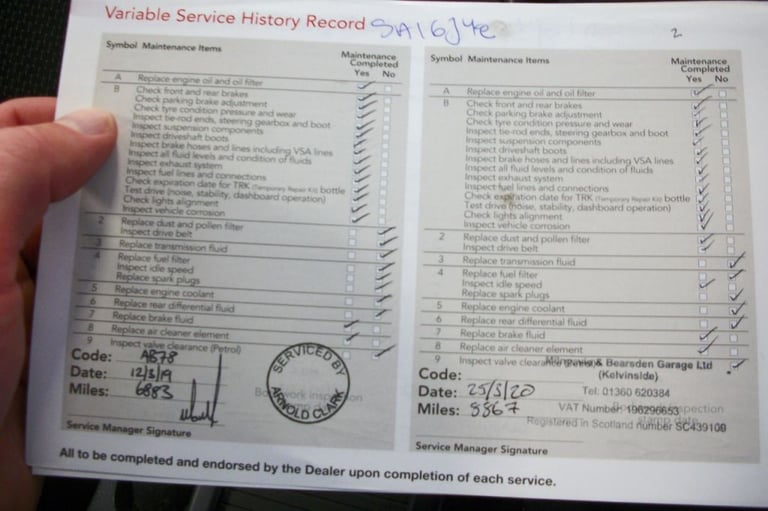 Variable Service History Record SA16JYe
2
Symbol Maintenance Items
Maintenance
Completed
Yes No
A Replace engine oil and oil filter
B Check front and rear brakes
Check parking brake adjustment
Check tyre condition pressure and wear
Inspect tie-rod ends, steering gearbox and boot
Inspect suspension components
Inspect driveshaft boots
Inspect brake hoses and lines including VSA lines
Inspect all fluid levels and condition of fluids
Inspect exhaust system
Inspect fuel lines and connections
Check expiration date for TRK (Temporary Repair Kit) bottle
Test drive (noise, stability, dashboard operation)
Check lights alignment
Inspect vehicle corrosion
2 Replace dust and pollen filter
Inspect drive belt
3 Replace transmission fluid
4 Replace fuel filter
Inspect idle speed
Replace spark plugs
5 Replace engine coolant
6 Replace rear differential fluid
7 Replace brake fluid
8 Replace air cleaner element
9 Inspect valve clearance (Petrol)
Code: AB78
Date: 12/3/19
Miles: 6883
SERVICED BY
ARNOLD CLARK
Bodywork inspection
Service Manager Signature
Symbol Maintenance Items
Maintenance
Completed
Yes No
A Replace engine oil and oil filter
B Check front and rear brakes
Check parking brake adjustment
Check tyre condition pressure and wear
Inspect tie-rod ends, steering gearbox and boot
Inspect suspension components
Inspect driveshaft boots
Inspect brake hoses and lines including VSA lines
Inspect all fluid levels and condition of fluids
Inspect exhaust system
Inspect fuel lines and connections
Check expiration date for TRK (Temporary Repair Kit) bottle
Test drive (noise, stability, dashboard operation)
Check lights alignment
Inspect vehicle corrosion
2 Replace dust and pollen filter
Inspect drive belt
3 Replace transmission fluid
4 Replace fuel filter
Inspect idle speed
Replace spark plugs
5 Replace engine coolant
6 Replace rear differential fluid
7 Replace brake fluid
8 Replace air cleaner element
9 Inspect valve clearance
& Bearsden Garage Ltd
Code: (Kelvinside)
Date: 25/3/20 Tel: 01360 620384
Miles: 9867 VAT Number 196296653
inspection
stamp date
Registered in Scotland number SC439100
Service Manager Signature
All to be completed and endorsed by the Dealer upon completion of each service.